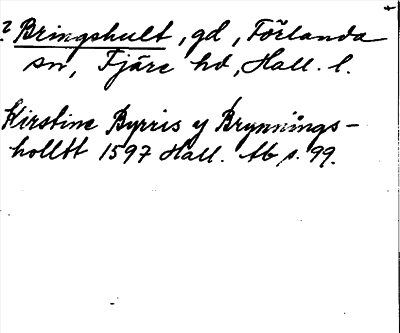 ? Bringshult, gd, Förlanda
sn, Fjäre hd, Hall. l.
Kirstine Byrris y Brynnings-
holltt 1597 Hall. Äb s. 99.